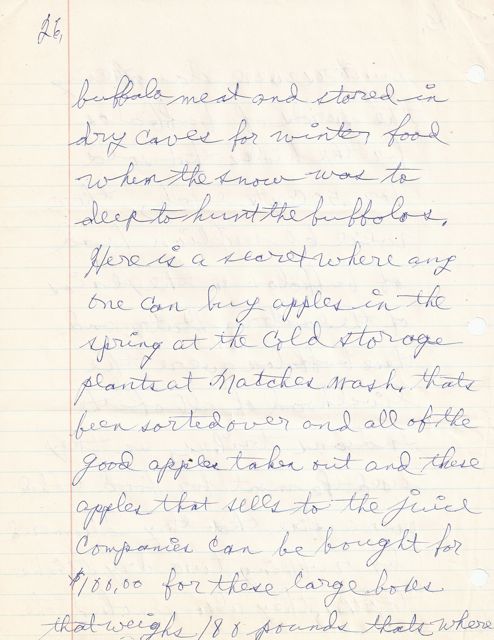 26,
buffalo meat and stored in
dry caves for winter food
when the snow was to
deep to hunt the buffalos.
Here is a secret where any
one can buy apples in the
spring at the Cold storage
plants at Natches Wash. thats
been sorted over and all of the
good apples taken out and these
apples that sells to the juice
Companies can be bought for
$100,00 for these large boxes
that weighs 180 pounds thats where